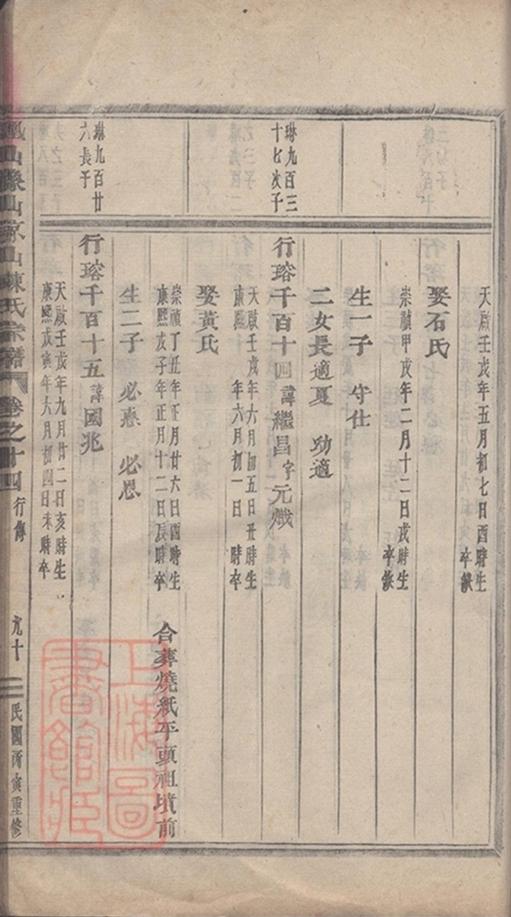 天啟壬戌年五月初七日酉時生
卒缺
娶石氏
崇禎甲戌年二月十二日戌時生
卒缺
生一子 守仕
二女長適夏 功適
琳九百三
十七次子
行瑢千百十四 諱繼昌字元熾
天啟壬戌年六月初五日丑時生
康熙 年六月初一日 時卒
娶黃氏
崇禎丁丑年正月廿六日酉時生
康熙戊子年正月十二日辰時卒
合葬燒紙平頭祖墳前
生二子 必泰 必恩
琳九百廿
六長子
行瑢千百十五 諱國兆
天啟壬戌年九月廿二日亥時生
康熙戊寅年六月初四日未時卒
山 山 山陳氏宗譜 卷之廿四 行傳 九十 民國丙寅重修
上海圖書館藏